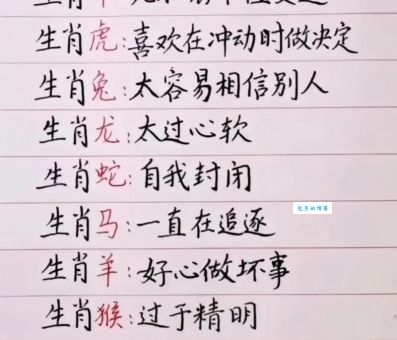 生肖虎:喜欢在冲动时做决定
生肖兔:太容易相信别人
生肖龙:太过心软
生肖蛇:自我封闭
生肖马:一直在追逐
生肖羊:好心做坏事
生肖猴:过于精明